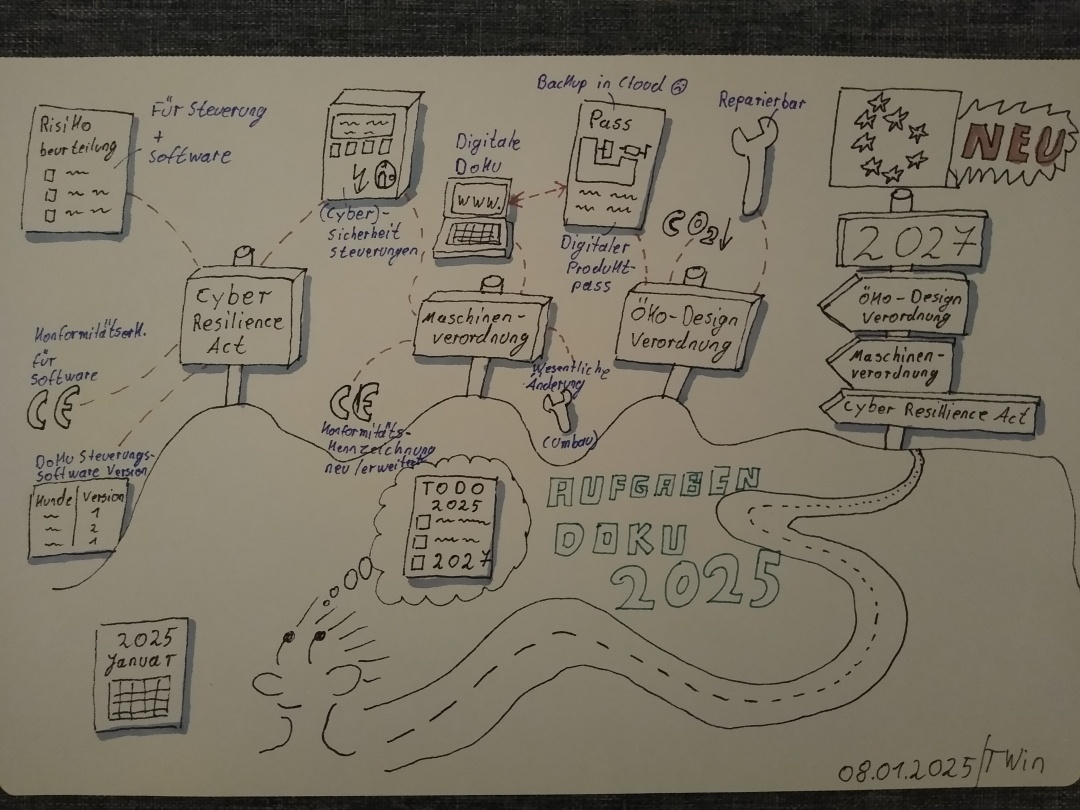 Risiko
beurteilung
Für Steuerung
+
Software
(Cyber)-
sicherheit
steuerungen
Digitale
Doku
www.
Backup in Cloud
Pass
Digitaler
Produkt-
pass
Reparierbar
CO2
NEU
2027
Öko-Design
verordnung
Maschinen-
verordnung
Cyber Resillience Act
Cyber
Resilience
Act
Maschinen-
verordnung
Öko-Design
Verordnung
Konformitätserk.
für
Software
CE
Doku Steuerungs-
Software Version
Kunde Version
1
2
1
CE
Konformitäts-
kennzeichnung
neu/erweitert
Wesentliche
Änderung
(Umbau)
TODO
2025
2027
AUFGABEN
DOKU
2025
2025
Januar
08.01.2025/TWin